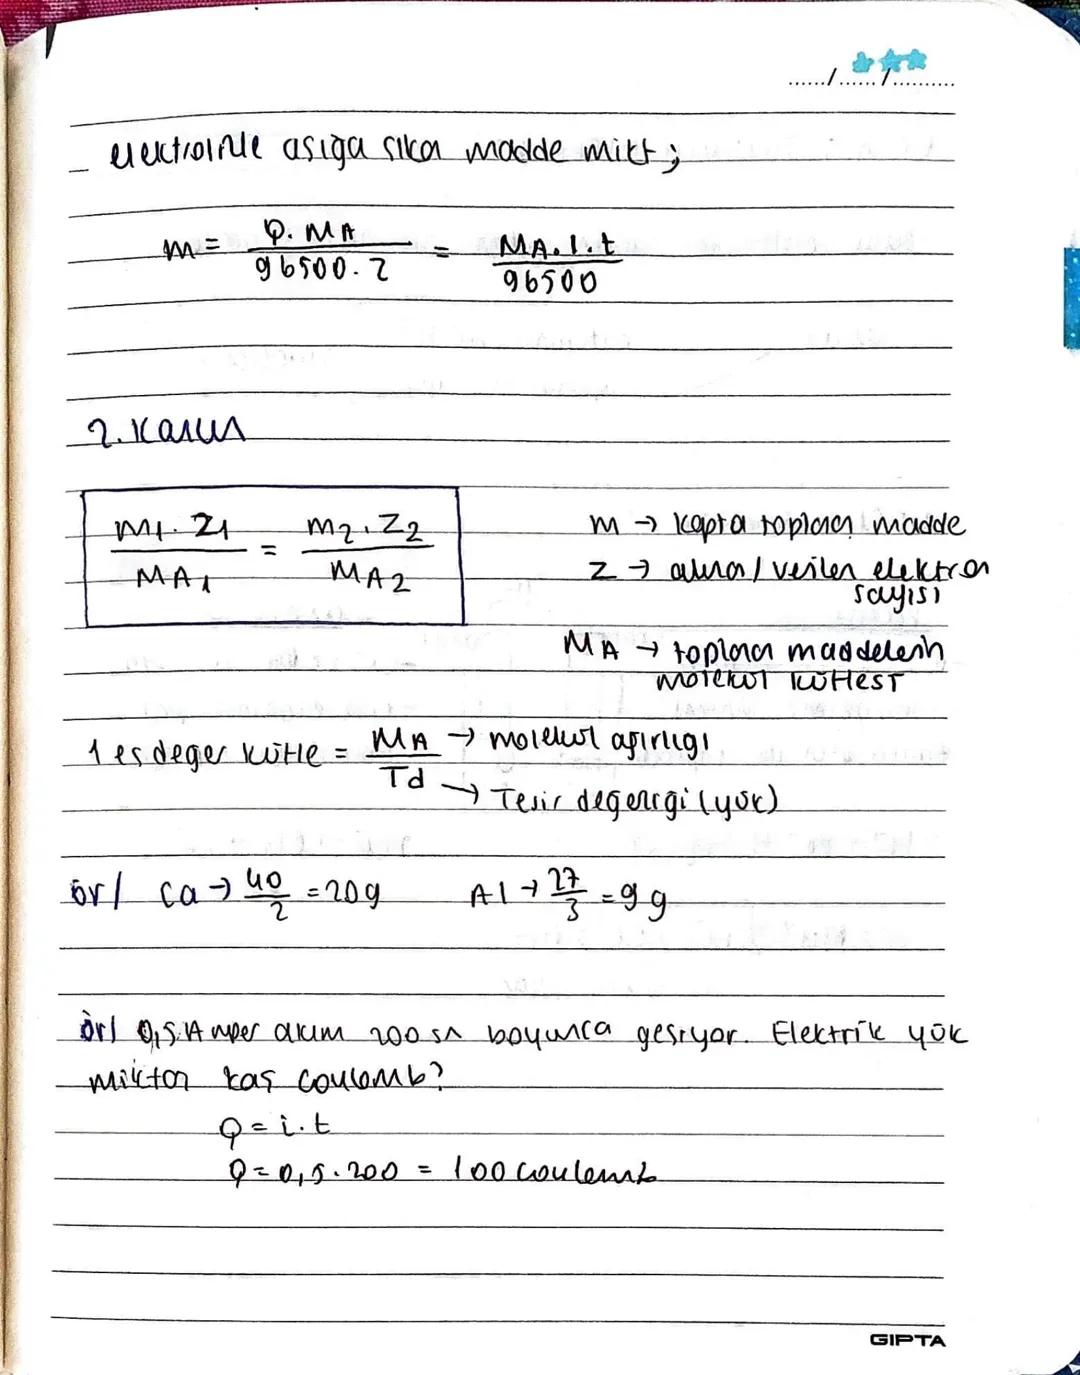 ....../....../..........
elektrolitle açığa çıkan madde mikt;
m = Q. MA / 96500. Z = MA. I. t / 96500
2. Kanun
m1. Z1 / MA1 = m2. Z2 / MA2
m → kapta toplanan madde
Z → alınan / verilen elektron
sayısı
MA → toplanan maddelerin
molekül kütlesi
1 eşdeğer kütle = MA → molekül ağırlığı
Td → Tesir değerliği (yük)
ör/ Ca → 40/2 = 20g Al → 27/3 = 9g
ör/ 0,5 Amper akım 200 sn boyunca geçiyor. Elektrik yük
miktarı kaç coulomb?
Q = i. t
Q = 0,5. 200 = 100 coulomb
GIPTA